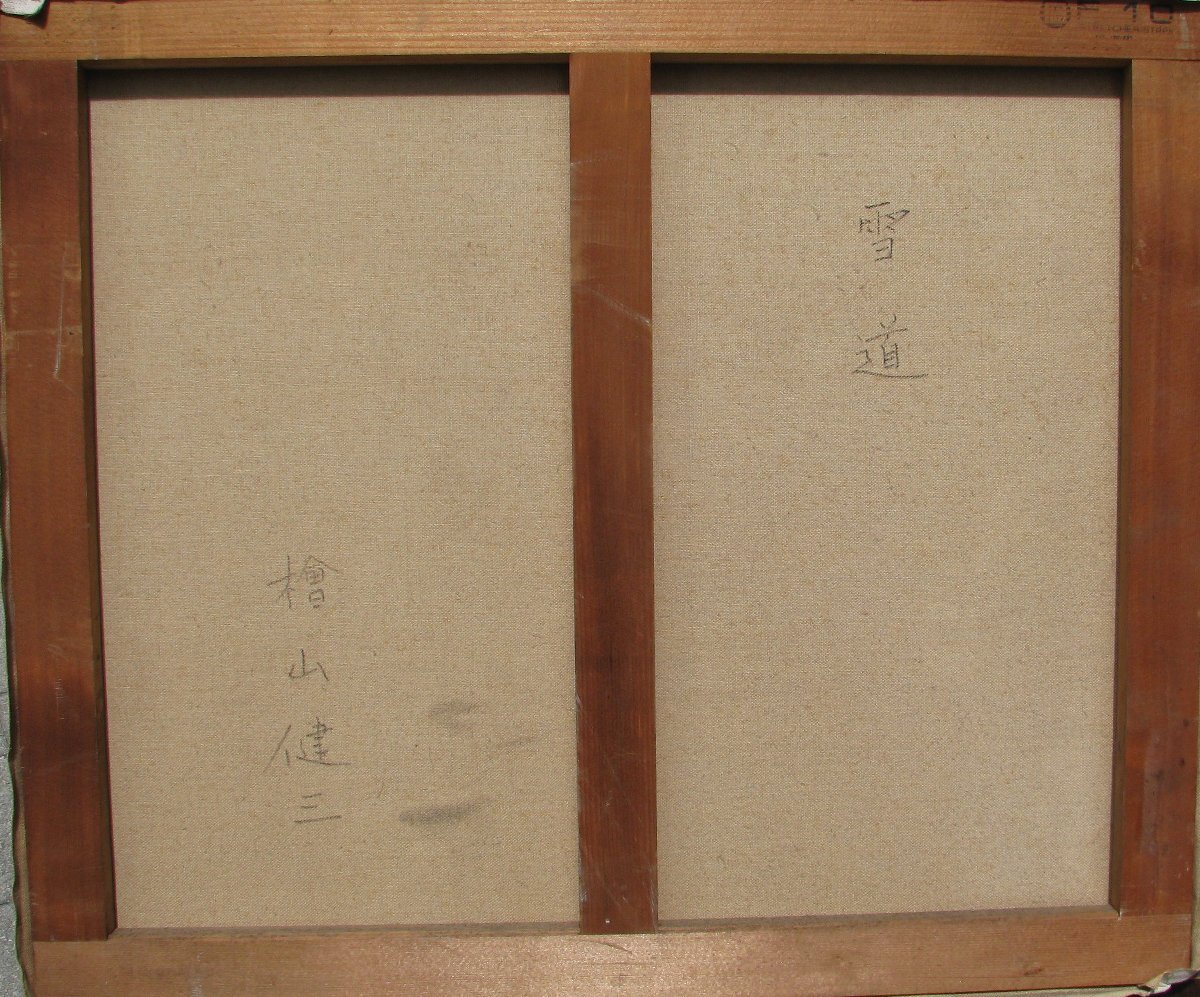 雪道
檜山健三
F 10